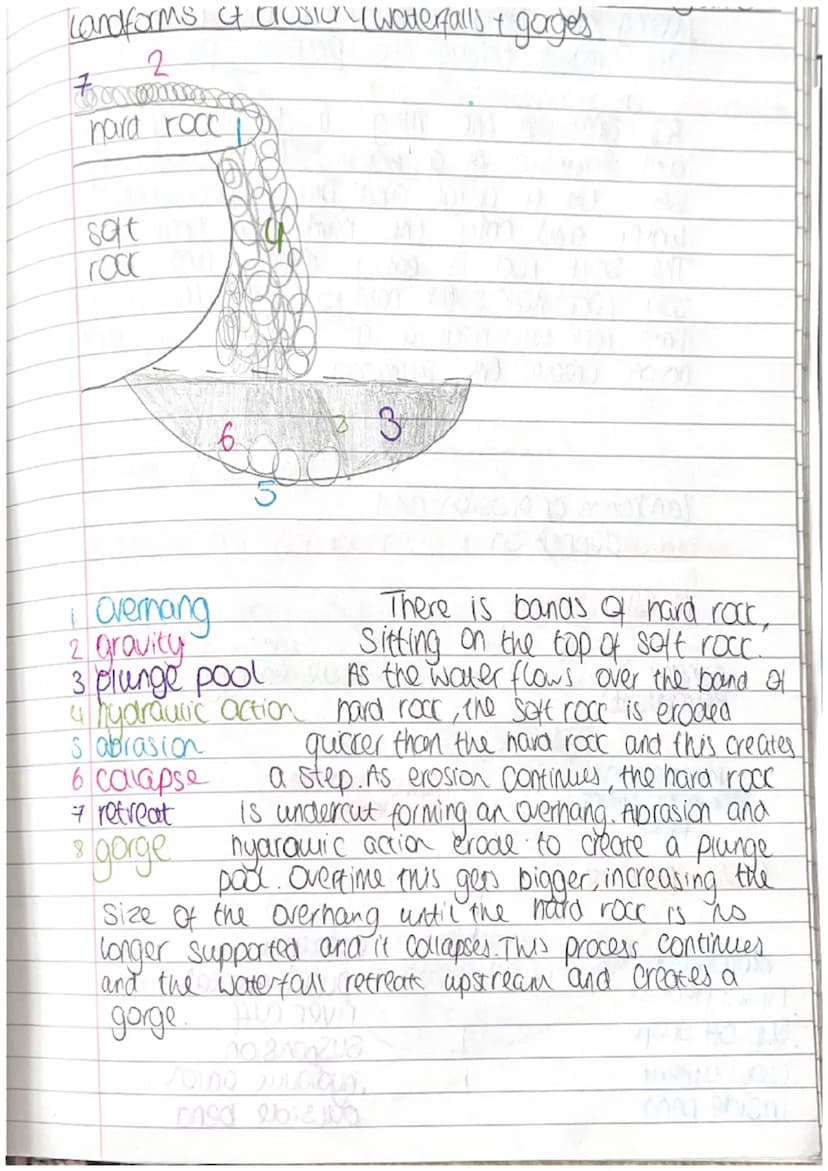 Landforms of Erosion (waterfalls + gorges)
2
7
hard rock 1
soft
rock
4
6
3
5
1 overhang
2 gravity
3 plunge pool
4 hydraulic action
5 abrasion
6 colapse
7 retreat
8 gorge
There is bands of hard rock,
Sitting on the top of soft rock.
As the water flows over the band of
hard rock, the soft rock is eroded
quicker than the hard rock and this creates
a step. As erosion continues, the hard rock
is undercut forming an overhang. Abrasion and
hydraulic action erode to create a plunge
pool. Overtime this gets bigger, increasing the
size of the overhang until the hard rock is no
longer supported and it collapses. This process continues
and the waterfall retreats upstream and creates a
gorge.